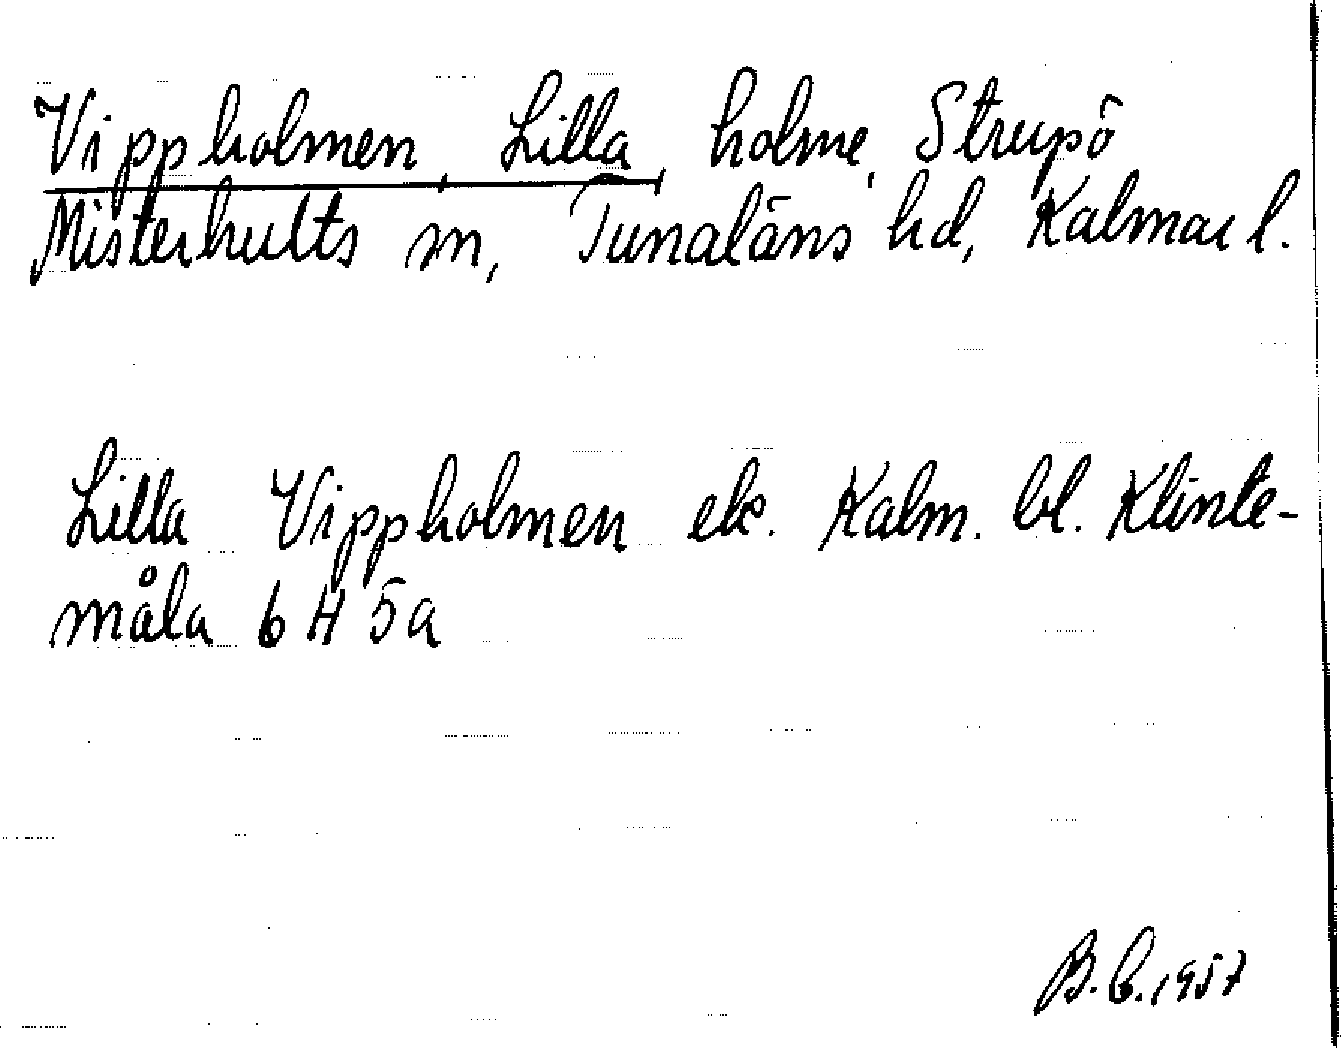 Vippholmen, Lilla, holme, Strupö
Misterhults sn, Tunaläns hd, Kalmar l.
Lilla Vippholmen ek. Kalm. bl. Klinte-
måla 6 H 5a
B.C.1957